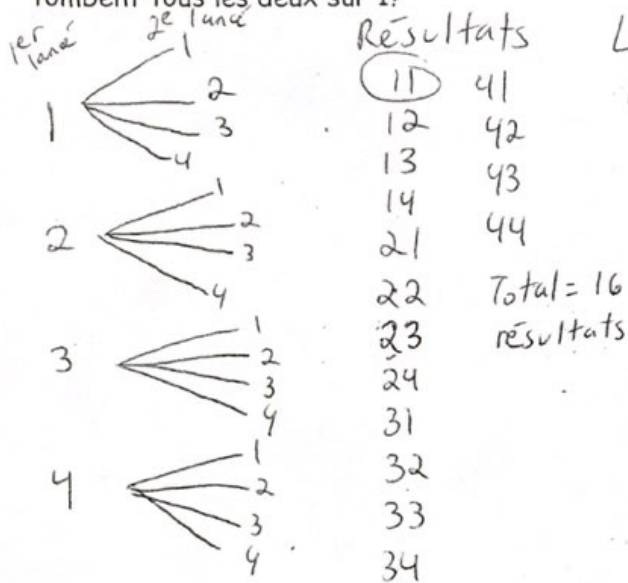 tombent tous les deux sur 1?
1er lancé
2e lancé
1
1
2
3
4
2
1
2
3
4
3
1
2
3
4
4
1
2
3
4
Résultats
L
11
12
13
14
21
22
23
24
31
32
33
34
41
42
43
44
Total = 16
résultats